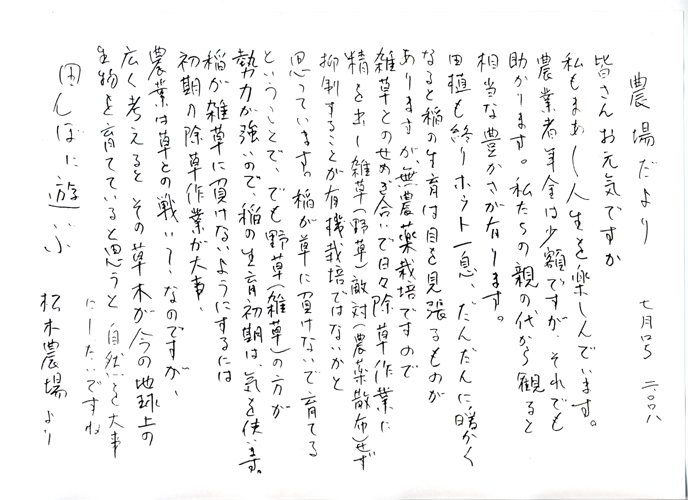 農場だより 七月号 二〇〇八
皆さんお元気ですか
私もまあー人生を楽しんでいます。
農業者年金は少額ですが、それでも
助かります。私たちの親の代から観ると
相当な豊かさが有ります。
田植も終りホット一息、だんだんに暖かく
なると稲の生育は目を見張るものが
ありますが、無農薬栽培ですので
雑草とのせめぎ合いで日々除草作業に
精を出し雑草(野草)敵対(農薬散布)せず
抑制することが有機栽培ではないかと
思っています。稲が草に負けないで育てる
ということで、でも野草(雑草)の方が
勢力が強いので、稲の生育初期は、気を使います。
稲が雑草に負けないようにするには
初期の除草作業が大事、
農業は草との戦いなのですが、
広く考えると その草木が今の地球上の
生物を育てていると思うと 自然を大事
にしたいですね
田んぼに遊ぶ
松木農場より